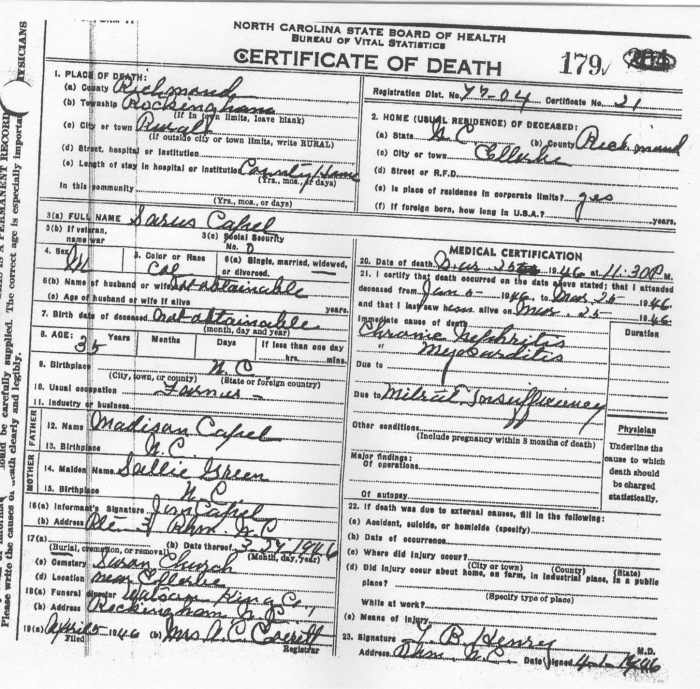 NORTH CAROLINA STATE BOARD OF HEALTH
BUREAU OF VITAL STATISTICS
CERTIFICATE OF DEATH 179
1. PLACE OF DEATH:
(a) County Richmond
(b) Township Rockingham
(If in town limits, leave blank)
(c) City or town Rural
(If outside city or town limits, write RURAL)
(d) Street, hospital or institution
(e) Length of stay in hospital or institution County Home
(Yrs., mos., or days)
In this community
(Yrs., mos., or days)
Registration Dist. No. 77-04 Certificate No. 21
2. HOME (USUAL RESIDENCE) OF DECEASED:
(a) State N C (b) County Richmond
(c) City or town Ellerbe
(d) Street or R.F.D.
(e) Is place of residence in corporate limits? yes
(f) If foreign born, how long in U.S.A.? years.
3(a) FULL NAME Capel
3(b) If veteran, name war
3(c) Social Security No. 0
4. Sex M
5. Color or Race Col
6(a) Single, married, widowed, or divorced.
6(b) Name of husband or wife Not obtainable
(c) Age of husband or wife if alive years.
7. Birth date of deceased Not obtainable
(month, day and year)
8. AGE: 35 Years Months Days If less than one day
hrs. mins.
9. Birthplace N. C
(City, town, or county) (State or foreign country)
10. Usual occupation Farmer
11. Industry or business
FATHER
12. Name Madison Capel
13. Birthplace N. C.
MOTHER
14. Maiden Name Sallie Green
15. Birthplace N C
16(a) Informant's Signature Jim Capel
(b) Address Rhm. N C
17(a) (b) Date thereof 3-27-1946
(Burial, cremation, or removal) (Month, day, year)
(c) Cemetery Church
(d) Location near Ellerbe
18(a) Funeral director Watson King Co,
(b) Address Rockingham N C
19(a) April 5 1946 (b) Mrs. W. C. Everett
Filed Registrar
MEDICAL CERTIFICATION
20. Date of death Mar 25 1946 at 11:30 P.M.
21. I certify that death occurred on the date above stated; that I attended
deceased from Jan 5- 1946 to Mar 25- 1946
and that I last saw him alive on Mar. 25 1946
Immediate cause of death Duration
Chronic Nephritis
" Myocarditis
Due to
Due to Mitral Insufficiency
Other conditions
(Include pregnancy within 3 months of death)
Major findings:
Of operations
Of autopsy
Physician
Underline the cause to which death should be charged statistically.
22. If death was due to external causes, fill in the following:
(a) Accident, suicide, or homicide (specify)
(b) Date of occurrence
(c) Where did injury occur?
(City or town) (County) (State)
(d) Did injury occur about home, on farm, in industrial place, in a public
place?
(Specify type of place)
While at work?
(e) Means of injury
23. Signature B. Henry M.D.
Address Rhm. N. C. Date signed 4-1-1946
PHYSICIANS
A PERMANENT RECORD
be carefully supplied. The correct age is especially important
Please write the causes of death clearly and legibly.